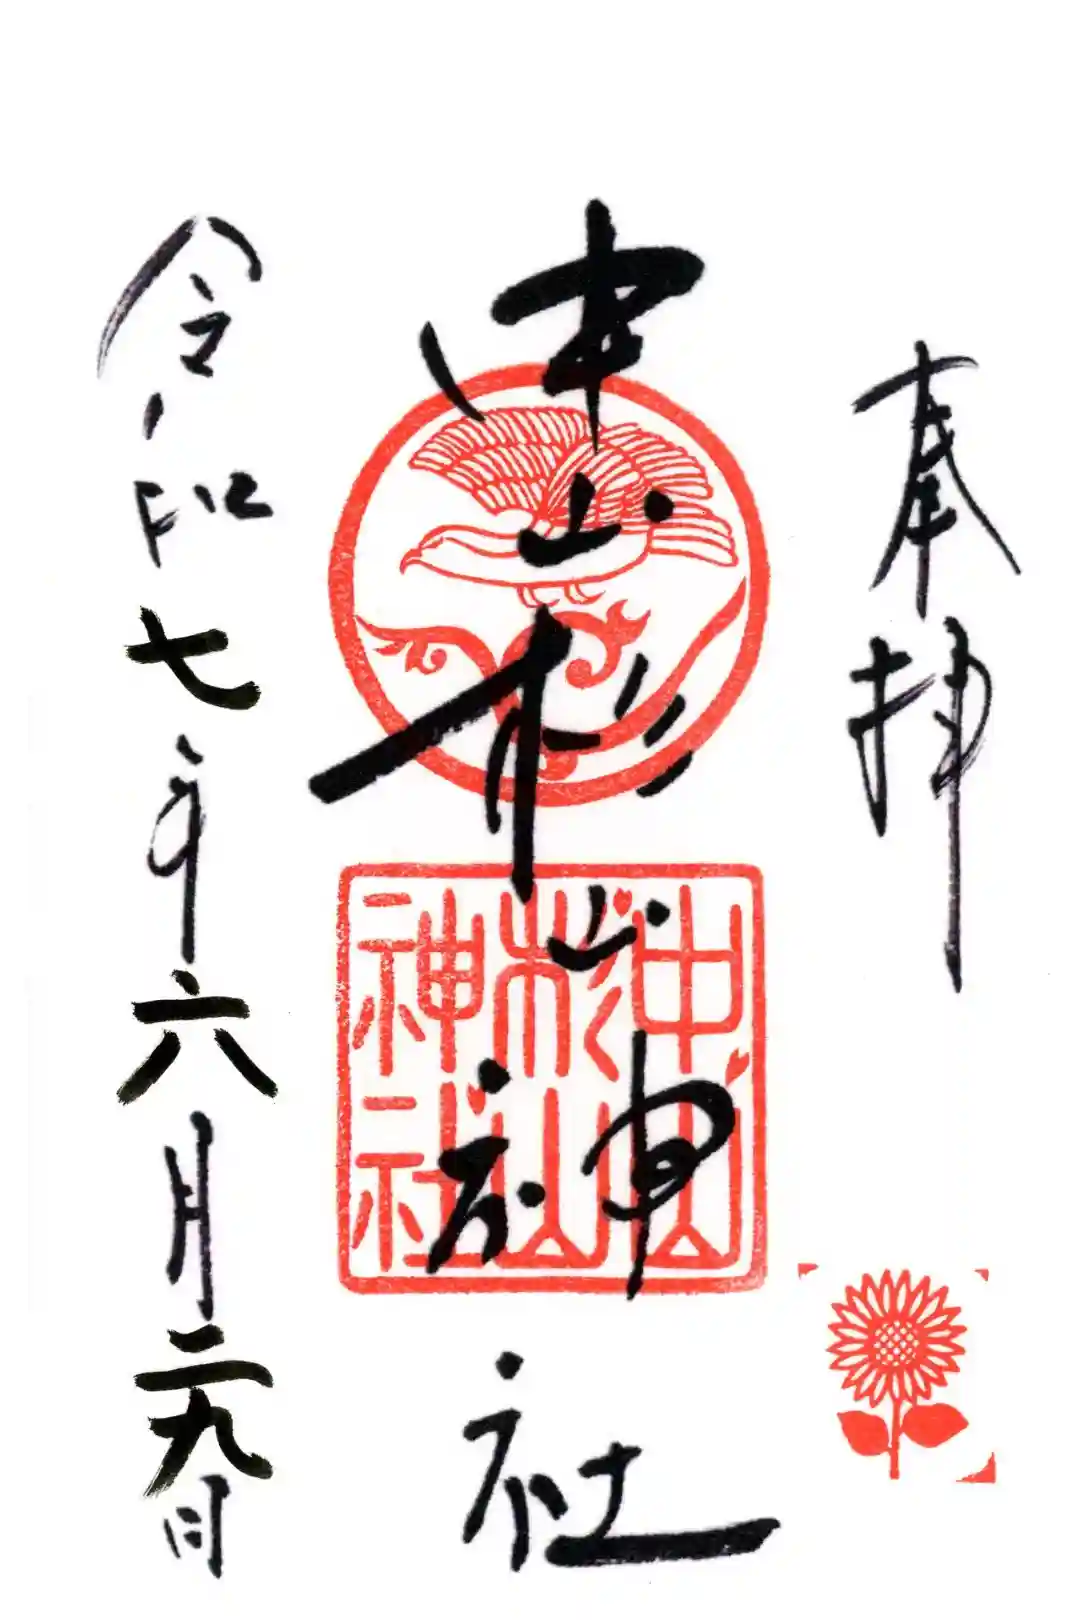 奉拝
中山杉山神社
中山
杉山
神社
令和七年六月二九日